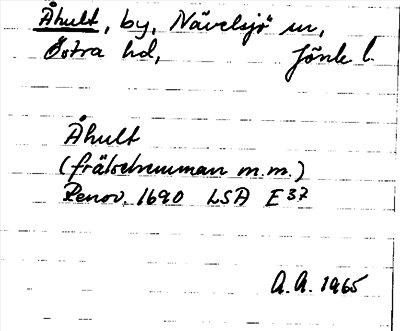 Åhult, by, Nävelsjö sn,
Östra hd, Jönk l.
Åhult
(frälsehemman m.m.)
Renov. 1690 LSA E 37
A.A. 1965